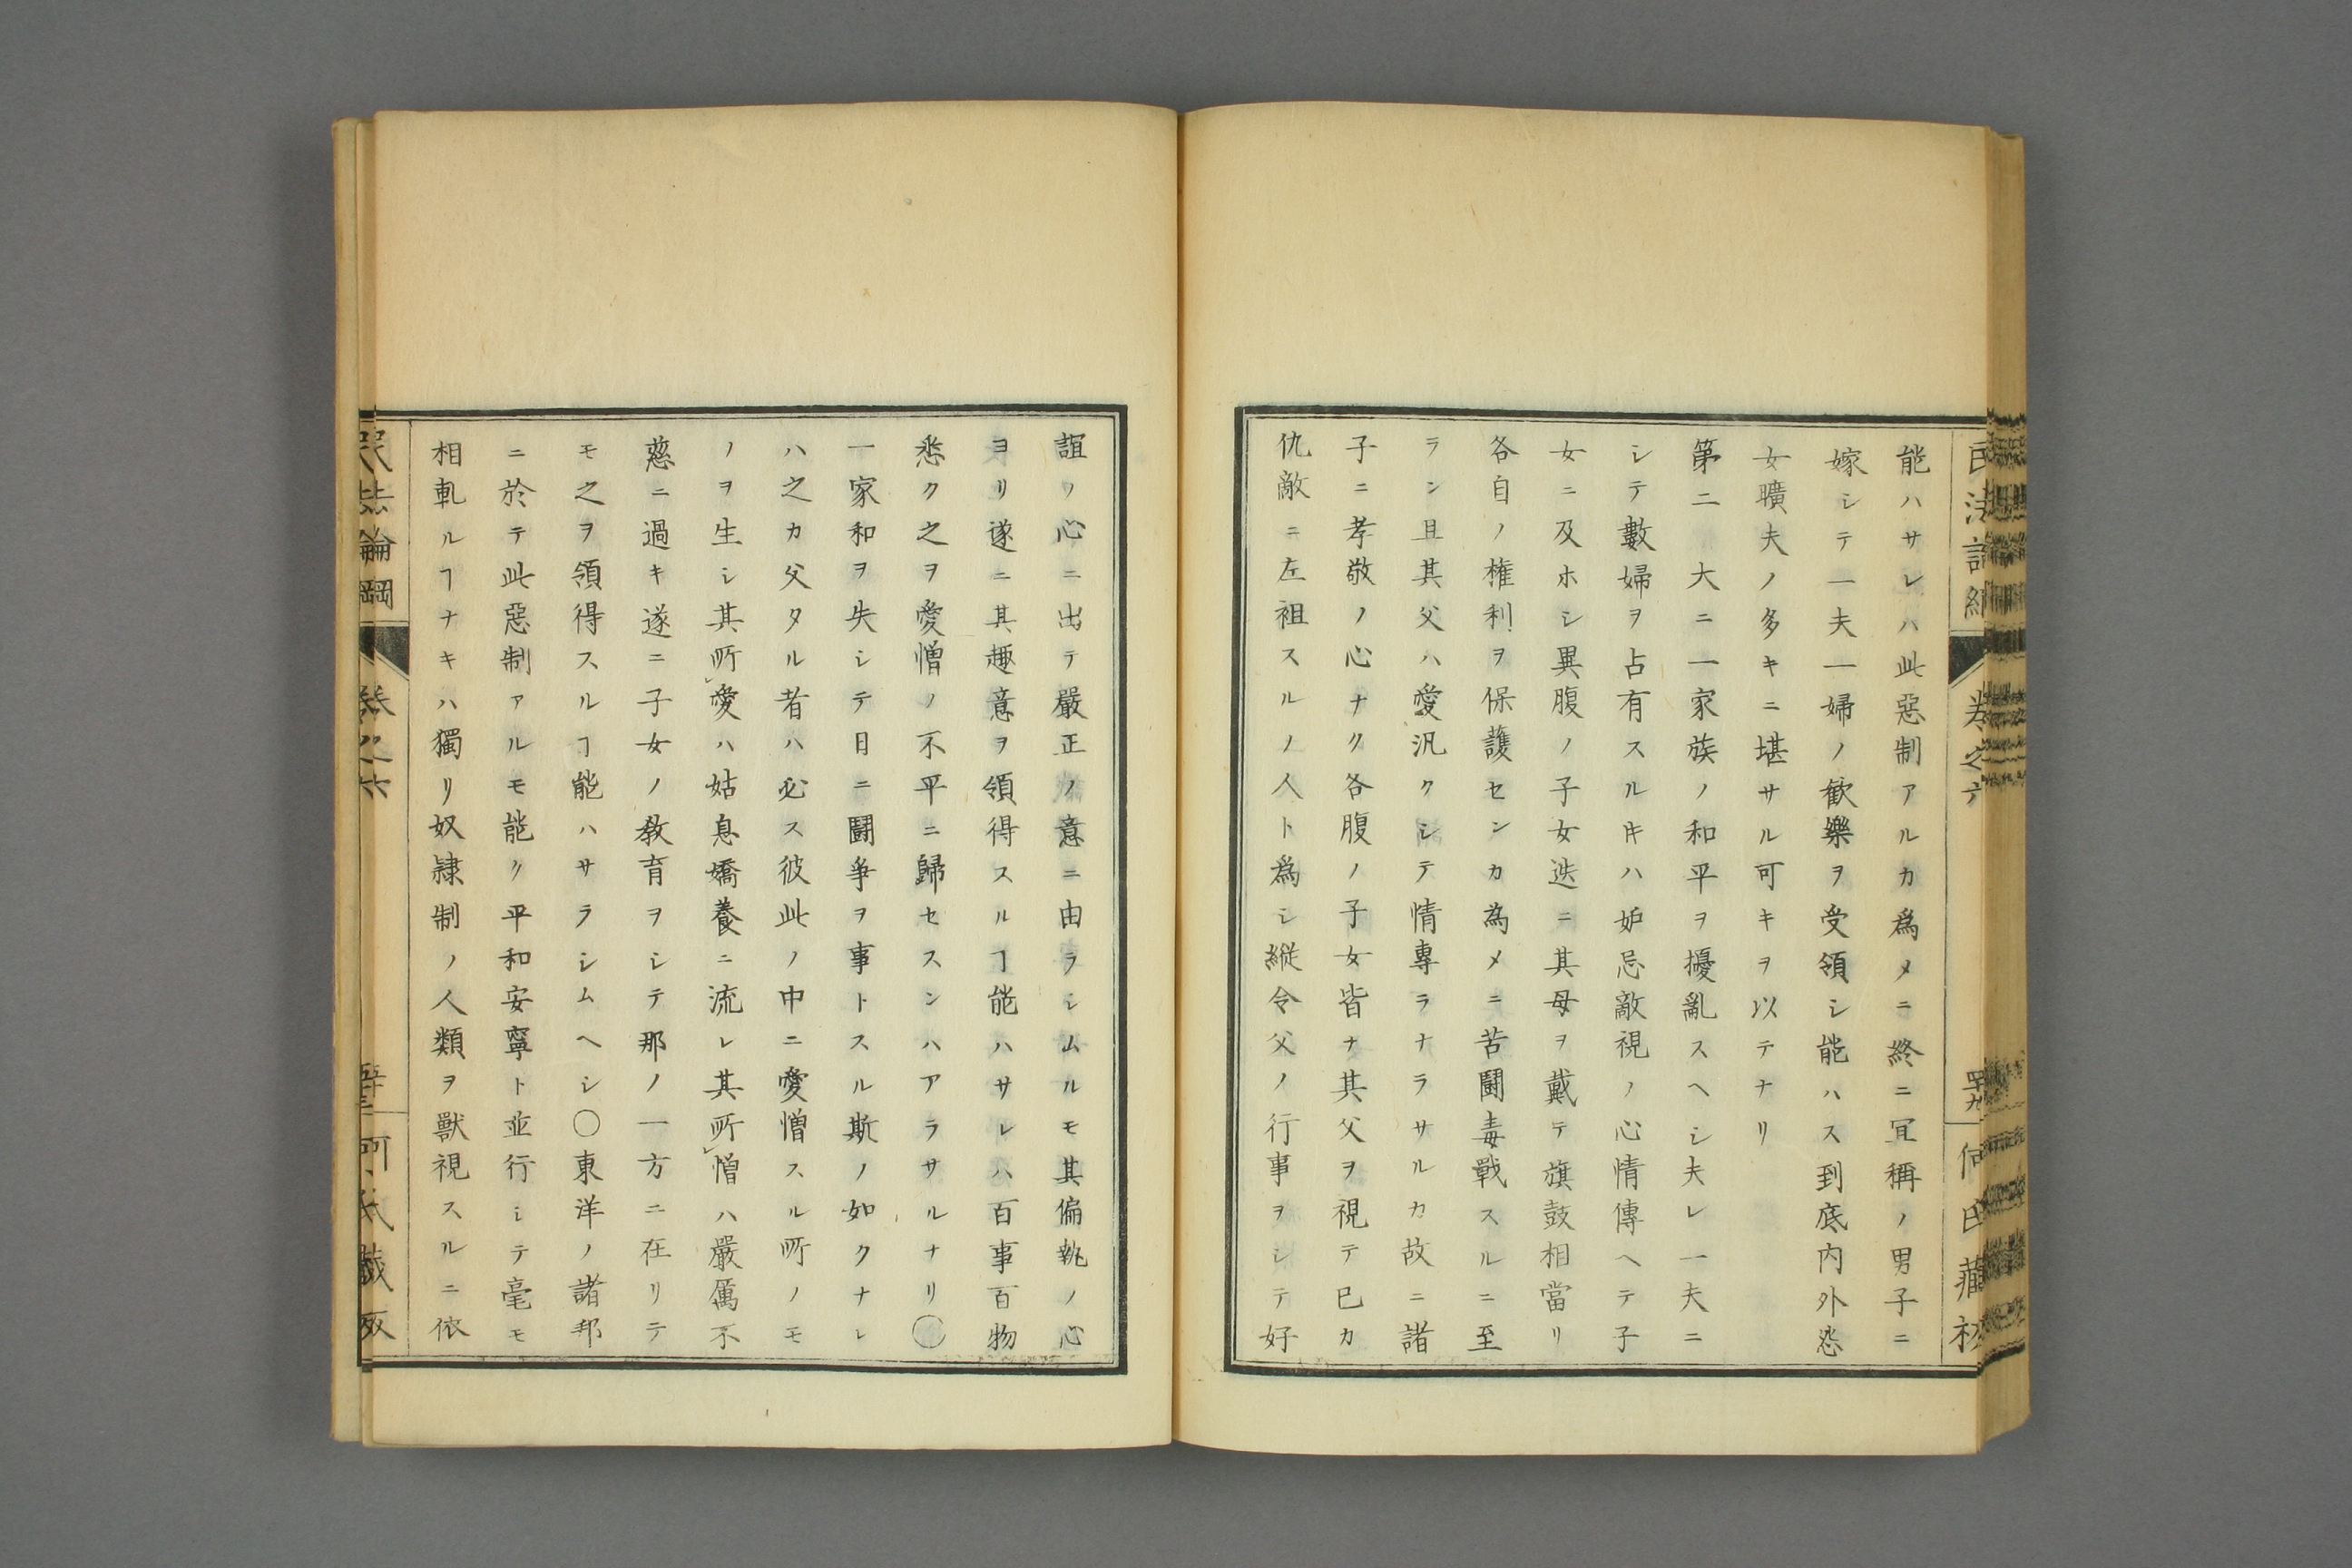 能ハサレハ此惡制アルカ爲メニ終ニ冝稱ノ男子ニ
嫁シテ一夫一婦ノ歓樂ヲ受領シ能ハス到底内外怨
女曠夫ノ多キニ堪サル可キヲ以テナリ
第二 大ニ一家族ノ和平ヲ擾亂スヘシ夫レ一夫ニ
シテ數婦ヲ占有スルㇳキハ妒忌敵視ノ心情傳ヘテ子
女ニ及ホシ異腹ノ子女迭ニ其母ヲ戴テ旗鼓相當リ
各自ノ権利ヲ保護センカ為メニ苦鬪毒戰スルニ至
ラン且其父ハ愛汎クシテ情專ラナラサルカ故ニ諸
子ニ孝敬ノ心ナク各腹ノ子女皆ナ其父ヲ視テ已カ
仇敵ニ左袒スルノ人ト為シ縱令父ノ行事ヲシテ好
誼ノ心ニ出テ嚴正ノ意ニ由ラシムルモ其偏執ノ心
ヨリ遂ニ其趣意ヲ領得スルヿ能ハサレハ百事百物
悉ク之ヲ愛憎ノ不平ニ歸セスンハアラサルナリ〇
一家和ヲ失シテ日ニ鬪爭ヲ事トスル斯ノ如クナレ
ハ之カ父タル者ハ必ス彼此ノ中ニ愛憎スル所ノモ
ノヲ生シ其所愛ハ姑息嬌養ニ流レ其所憎ハ嚴厲不
慈ニ過キ遂ニ子女ノ敎育ヲシテ那ノ一方ニ在リテ
モ之ヲ領得スルヿ能ハサラシムヘシ〇東洋ノ諸邦
ニ於テ此惡制アルモ能ク平和安寧ト並行シテ毫モ
相軋ルヿナキハ獨リ奴隷制ノ人類ヲ獸視スルニ依
民法論綱 卷之六 何氏藏版